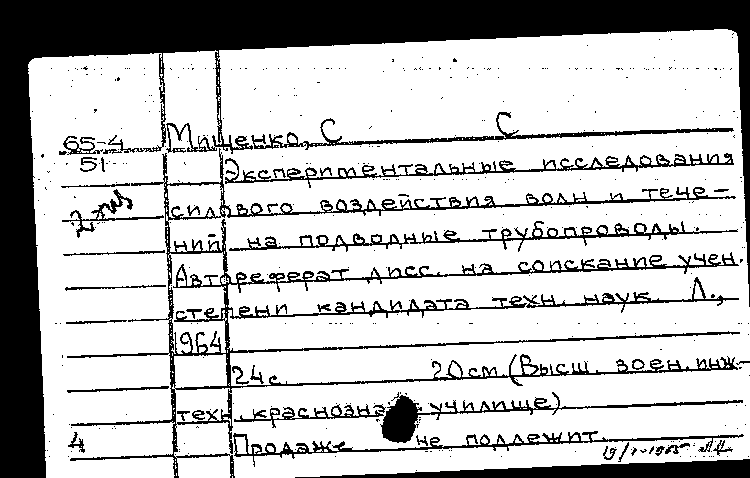 65-4 Мищенко, С С
51 Экспериментальные исследования
2 экз силового воздействия волн и тече-
ний на подводные трубопроводы.
Автореферат дисс. на соискание учен.
степени кандидата техн. наук. Л.,
1964
24 с. 20 см. (Высш. воен. инж.-
техн. краснозна училище)
4 Продаже не подлежит.